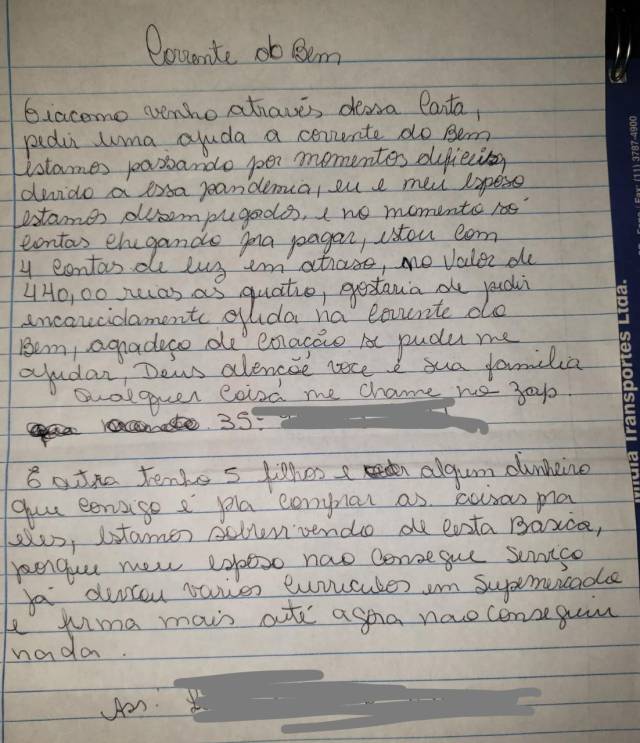 Corrente do Bem
Giacomo venho através dessa Carta,
pedir uma ajuda a corrente do Bem
estamos passando por momentos dificeis,
devido a essa pandemia, eu e meu esposo
estamos desempregados, e no momento só
contas chegando pra pagar, estou com
4 contas de luz em atraso, no valor de
440,00 reias as quatro, gostaria de pedir
encarecidamente ajuda na corrente do
Bem, agradeço de coração se puder me
ajudar, Deus abençõe voce e sua familia
Qualquer coisa me chame no zap.
35-
E outra tenho 5 filhos e algum dinheiro
que consigo é pra comprar as coisas pra
eles, estamos sobrevivendo de cesta Basica,
porque meu esposo nao consegue serviço
já deixou varios curriculos em supermercado
e firma mais até agora nao conseguiu
nada.
Ass:
Transportes Ltda.
(11) 3787-4900